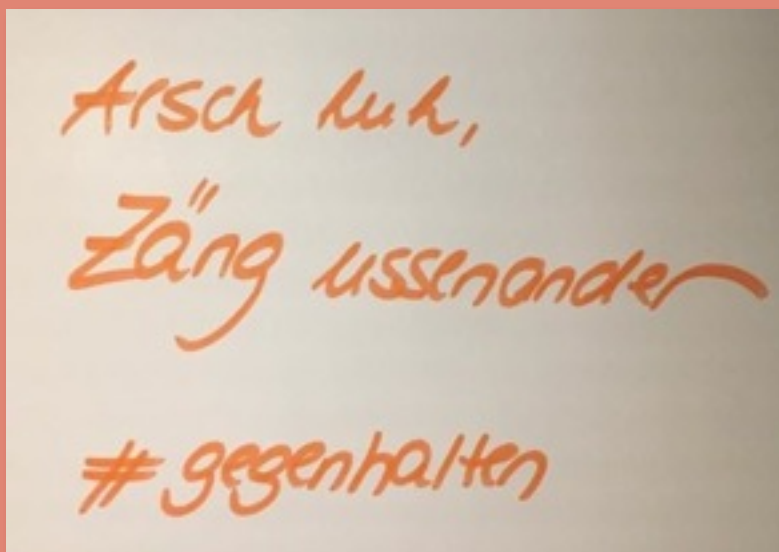 Arsch huh,
Zäng ussenander
#gegenhalten